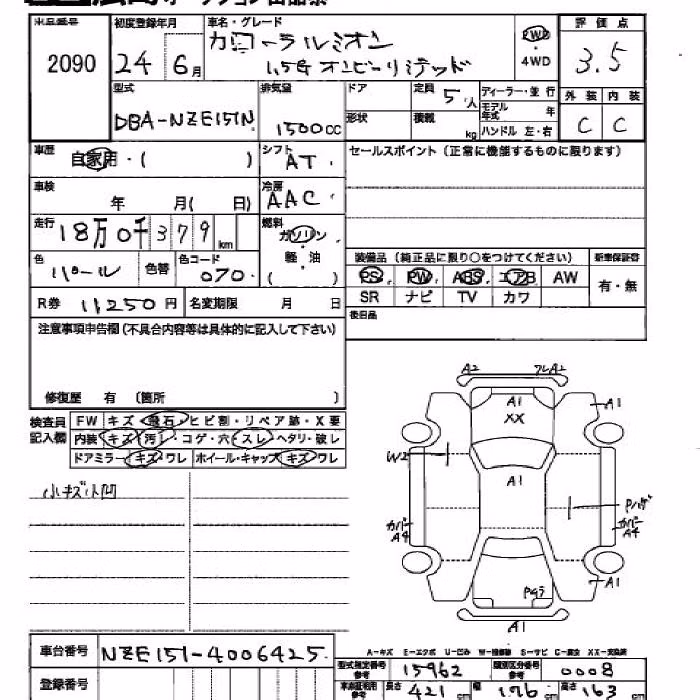 出品番号 2090
初度登録年月 24年6月
車名・グレード カローラルミオン
1.5G オンビーリミテッド
2WD ・ 4WD
評価点 3.5
外装 C 内装 C
型式 DBA-NZE151N
排気量 1500cc
ドア 形状
定員 5人 積載 kg
ディーラー・並行
モデル年式 年
ハンドル 左・右
車歴 自家用・( )
シフト AT
セールスポイント (正常に機能するものに限ります)
車検 年 月( 日)
冷房 AAC
走行 18万0千379km
燃料 ガソリン・軽・油 ( )
色 パール 色替 色コード 070
装備品 (純正品に限り○をつけてください) 新車保証書
PS PW ABS エアB AW 有・無
SR ナビ TV カワ
R券 11250円 名変期限 月 日
後日品
注意事項申告欄 (不具合内容等は具体的に記入して下さい)
修復歴 有 (箇所 )
検査員記入欄
FW キズ・飛石・ヒビ割・リペア跡・X要
内装 キズ・汚レ・コゲ・穴・スレ・ヘタリ・破レ
ドアミラー・キズ・ワレ ホイール・キャップ・キズ・ワレ
小キズ小凹
A2 フレA2
A1 XX
A1
W2
A1
Pハゲ
カバーA4 カバーA4
A1
A1
車台番号 NZE151-4006425
登録番号
A-キズ E-エクボ U-凹み W-補修跡 S-サビ C-腐食 XX-交換済
型式指定番号 参考 15962
類別区分番号 参考 0008
車検証明用 参考 長さ 421cm 幅 176cm 高さ 163cm